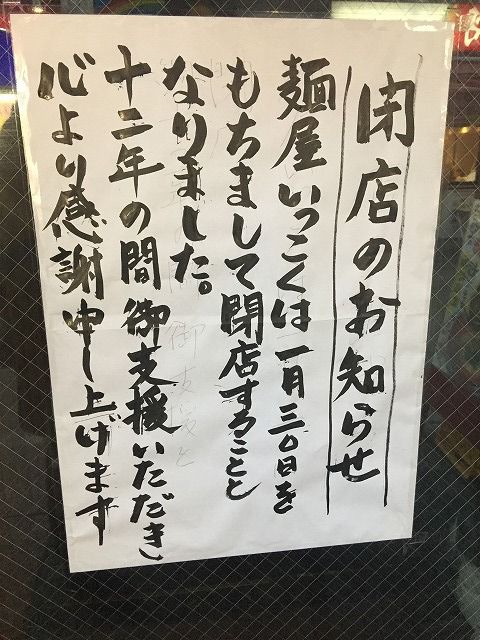 閉店のお知らせ
麺屋いっこくは一月三〇日を
もちまして閉店することと
なりました。
十二年の間御支援いただき
心より感謝申し上げます